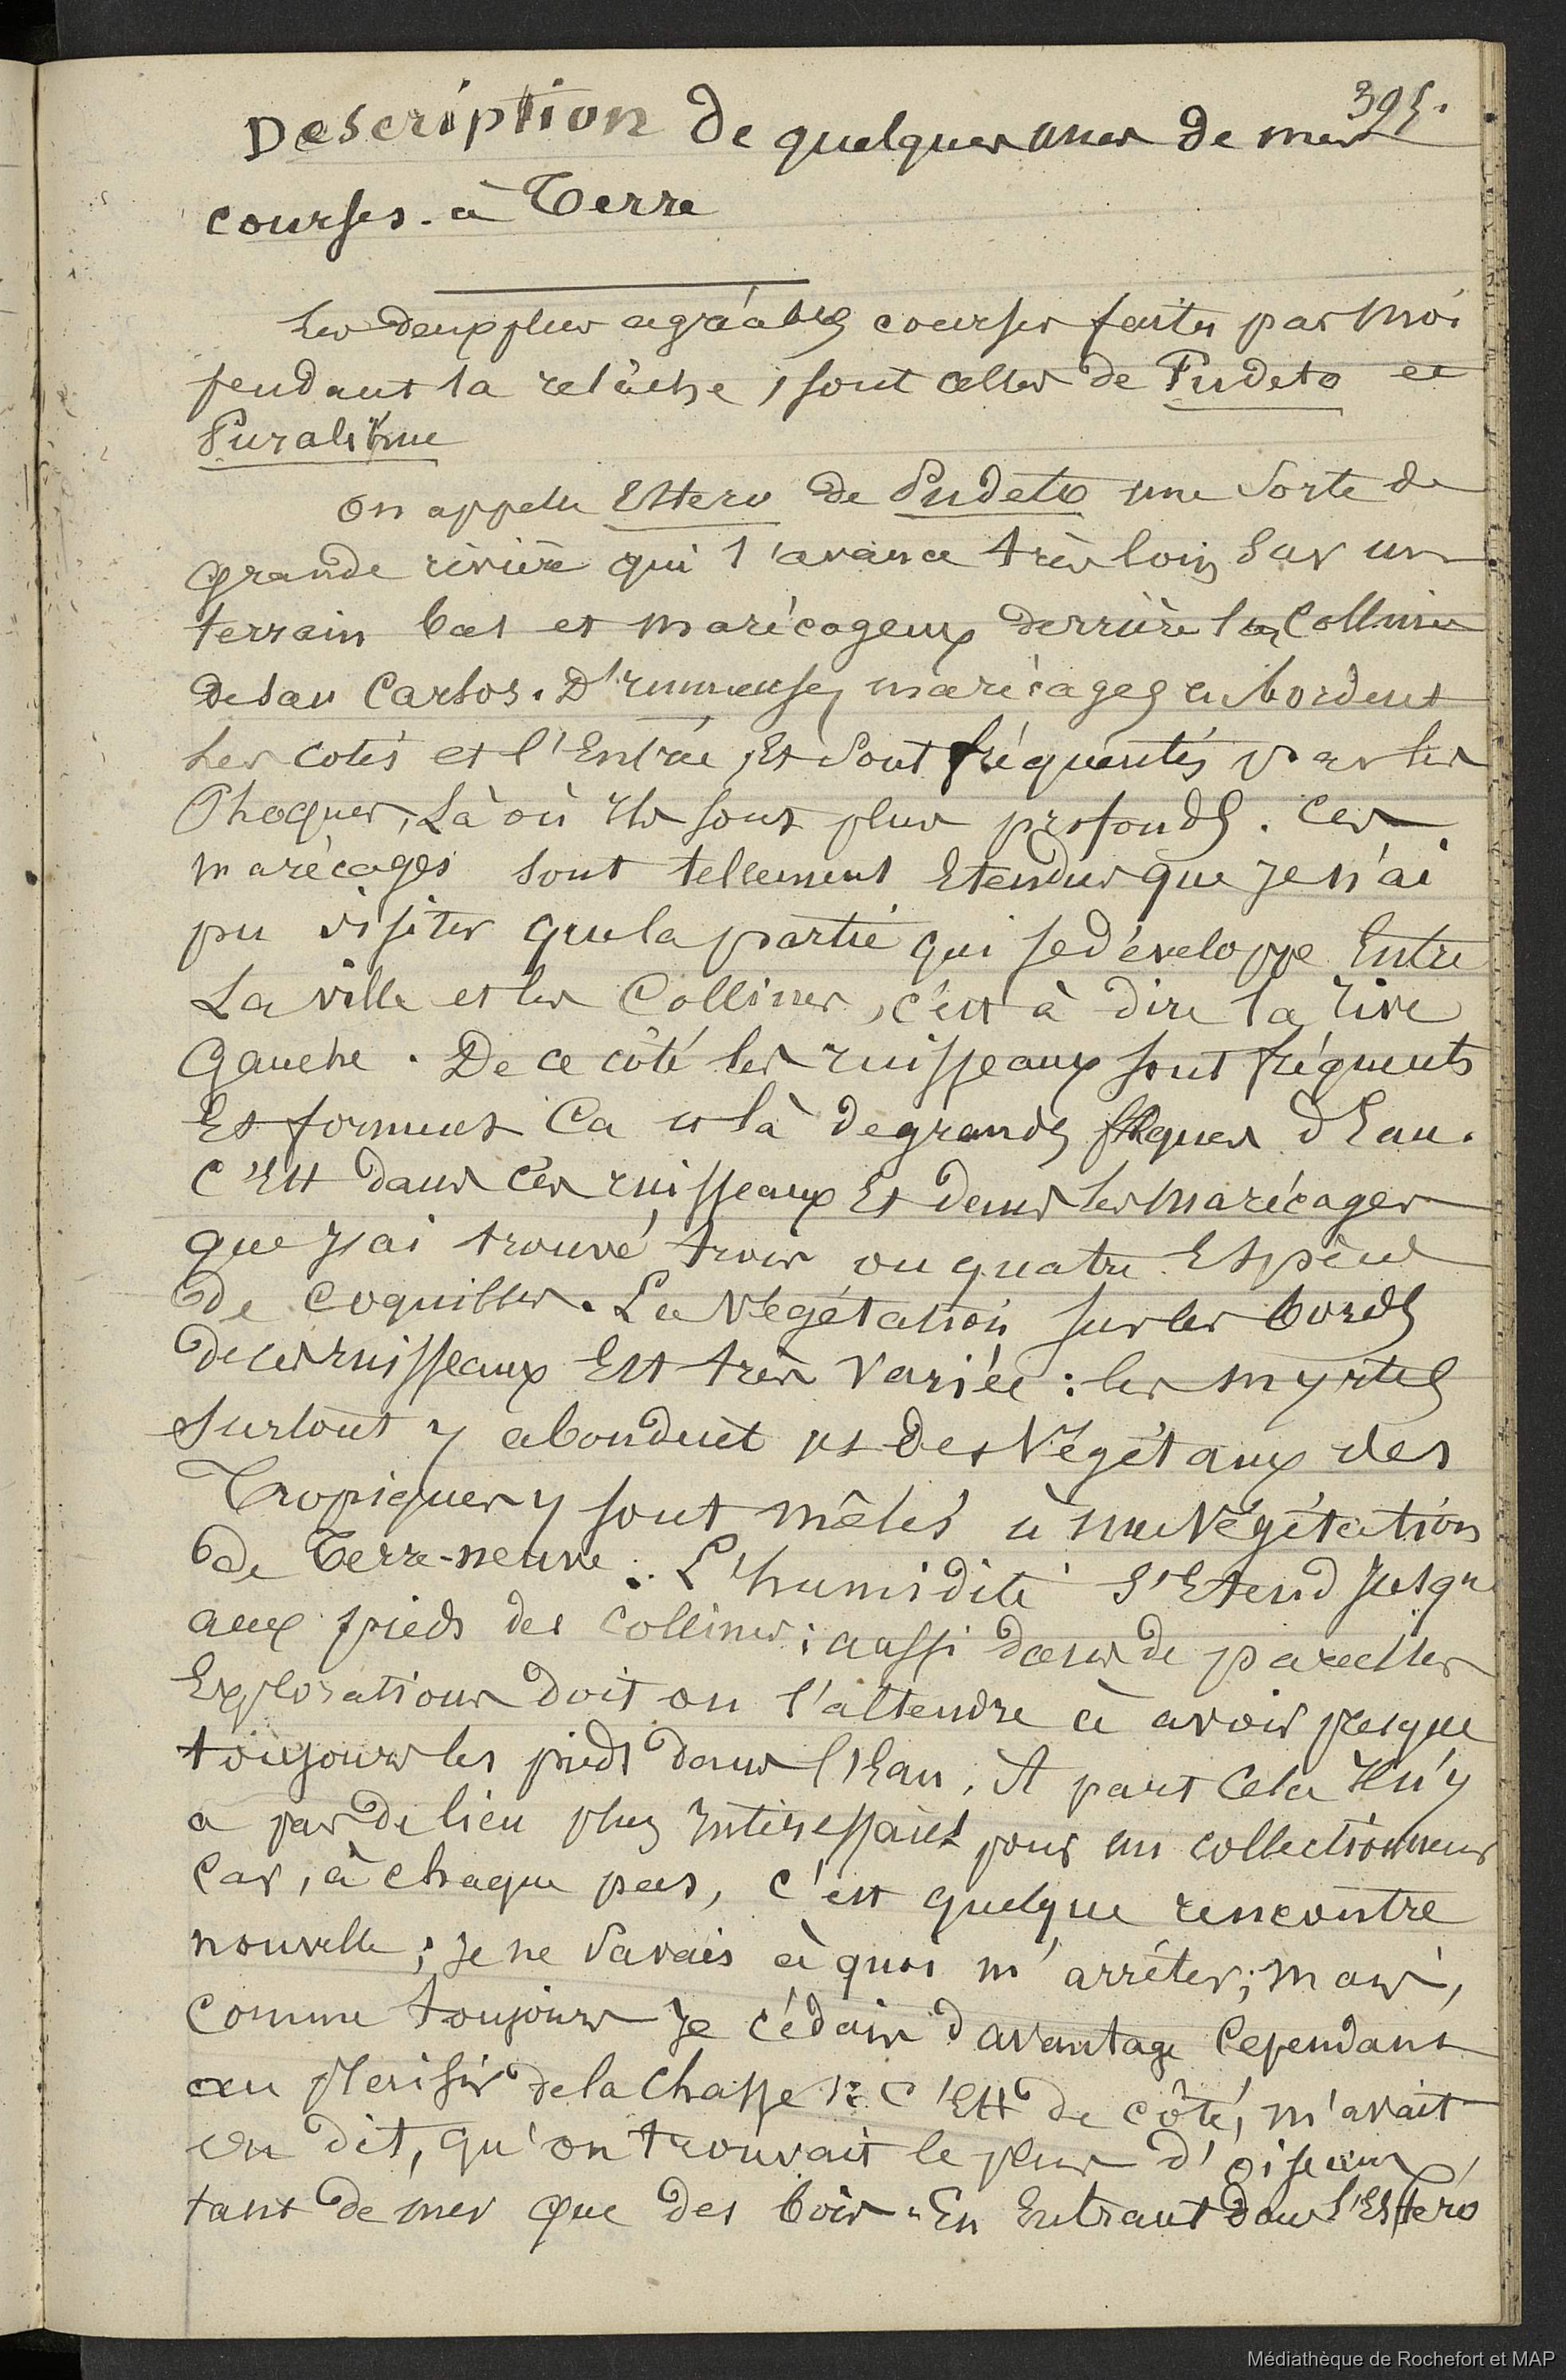 395.
Description de quelques unes de mes
courses à Terre
Les deux plus agréables courses faites par moi
pendant la relâche, sont celles de Pudeto et
On appelle Estero de Pudeto une sorte de
grande rivière qui s'avance très loin sur un
terrain bas et marécageux derrière les Collines
de San Carlos. D'immenses marécages en bordent
les cotés et l'Entrée, Et sont fréquentés par les
Phoques, Là où ils sont plus profonds. Ces
marécages sont tellement Etendus que je n'ai
pu visiter que la partie qui se développe Entre
La ville et les Collines, c'est à dire la rive
Gauche. De ce côté les ruisseaux sont fréquents
Et forment Ca et là de grandes flaques d'Eau.
C'Est dans ces ruisseaux Et dans les marécages
que j'ai trouvé trois ou quatre Espèces
de Coquilles. La Végétation sur les bords
de ces ruisseaux Est très variée : les myrtes
surtout y abondent et des Végétaux des
Tropiques y sont mêlés à une Végétation
de Terre-neuve. L'humidité s'Etend jusqu'
aux pieds des Collines ; aussi dans de pareilles
Explorations doit on s'attendre à avoir presque
toujours les pieds dans l'Eau. A part Cela Il n'y
a pas de lieu plus Intéressant pour un collectionneur
Car, à chaque pas, c'est quelque rencontre
nouvelle ; je ne savais à quoi m'arrêter ; mais,
comme toujours je cédais davantage Cependant
au plaisir de la Chasse : C'Est de côté, m'avait
on dit, qu'on trouvait le plus d'oiseaux,
tant de mer que des bois. En Entrant dans l'Estero
Médiathèque de Rochefort et MAP